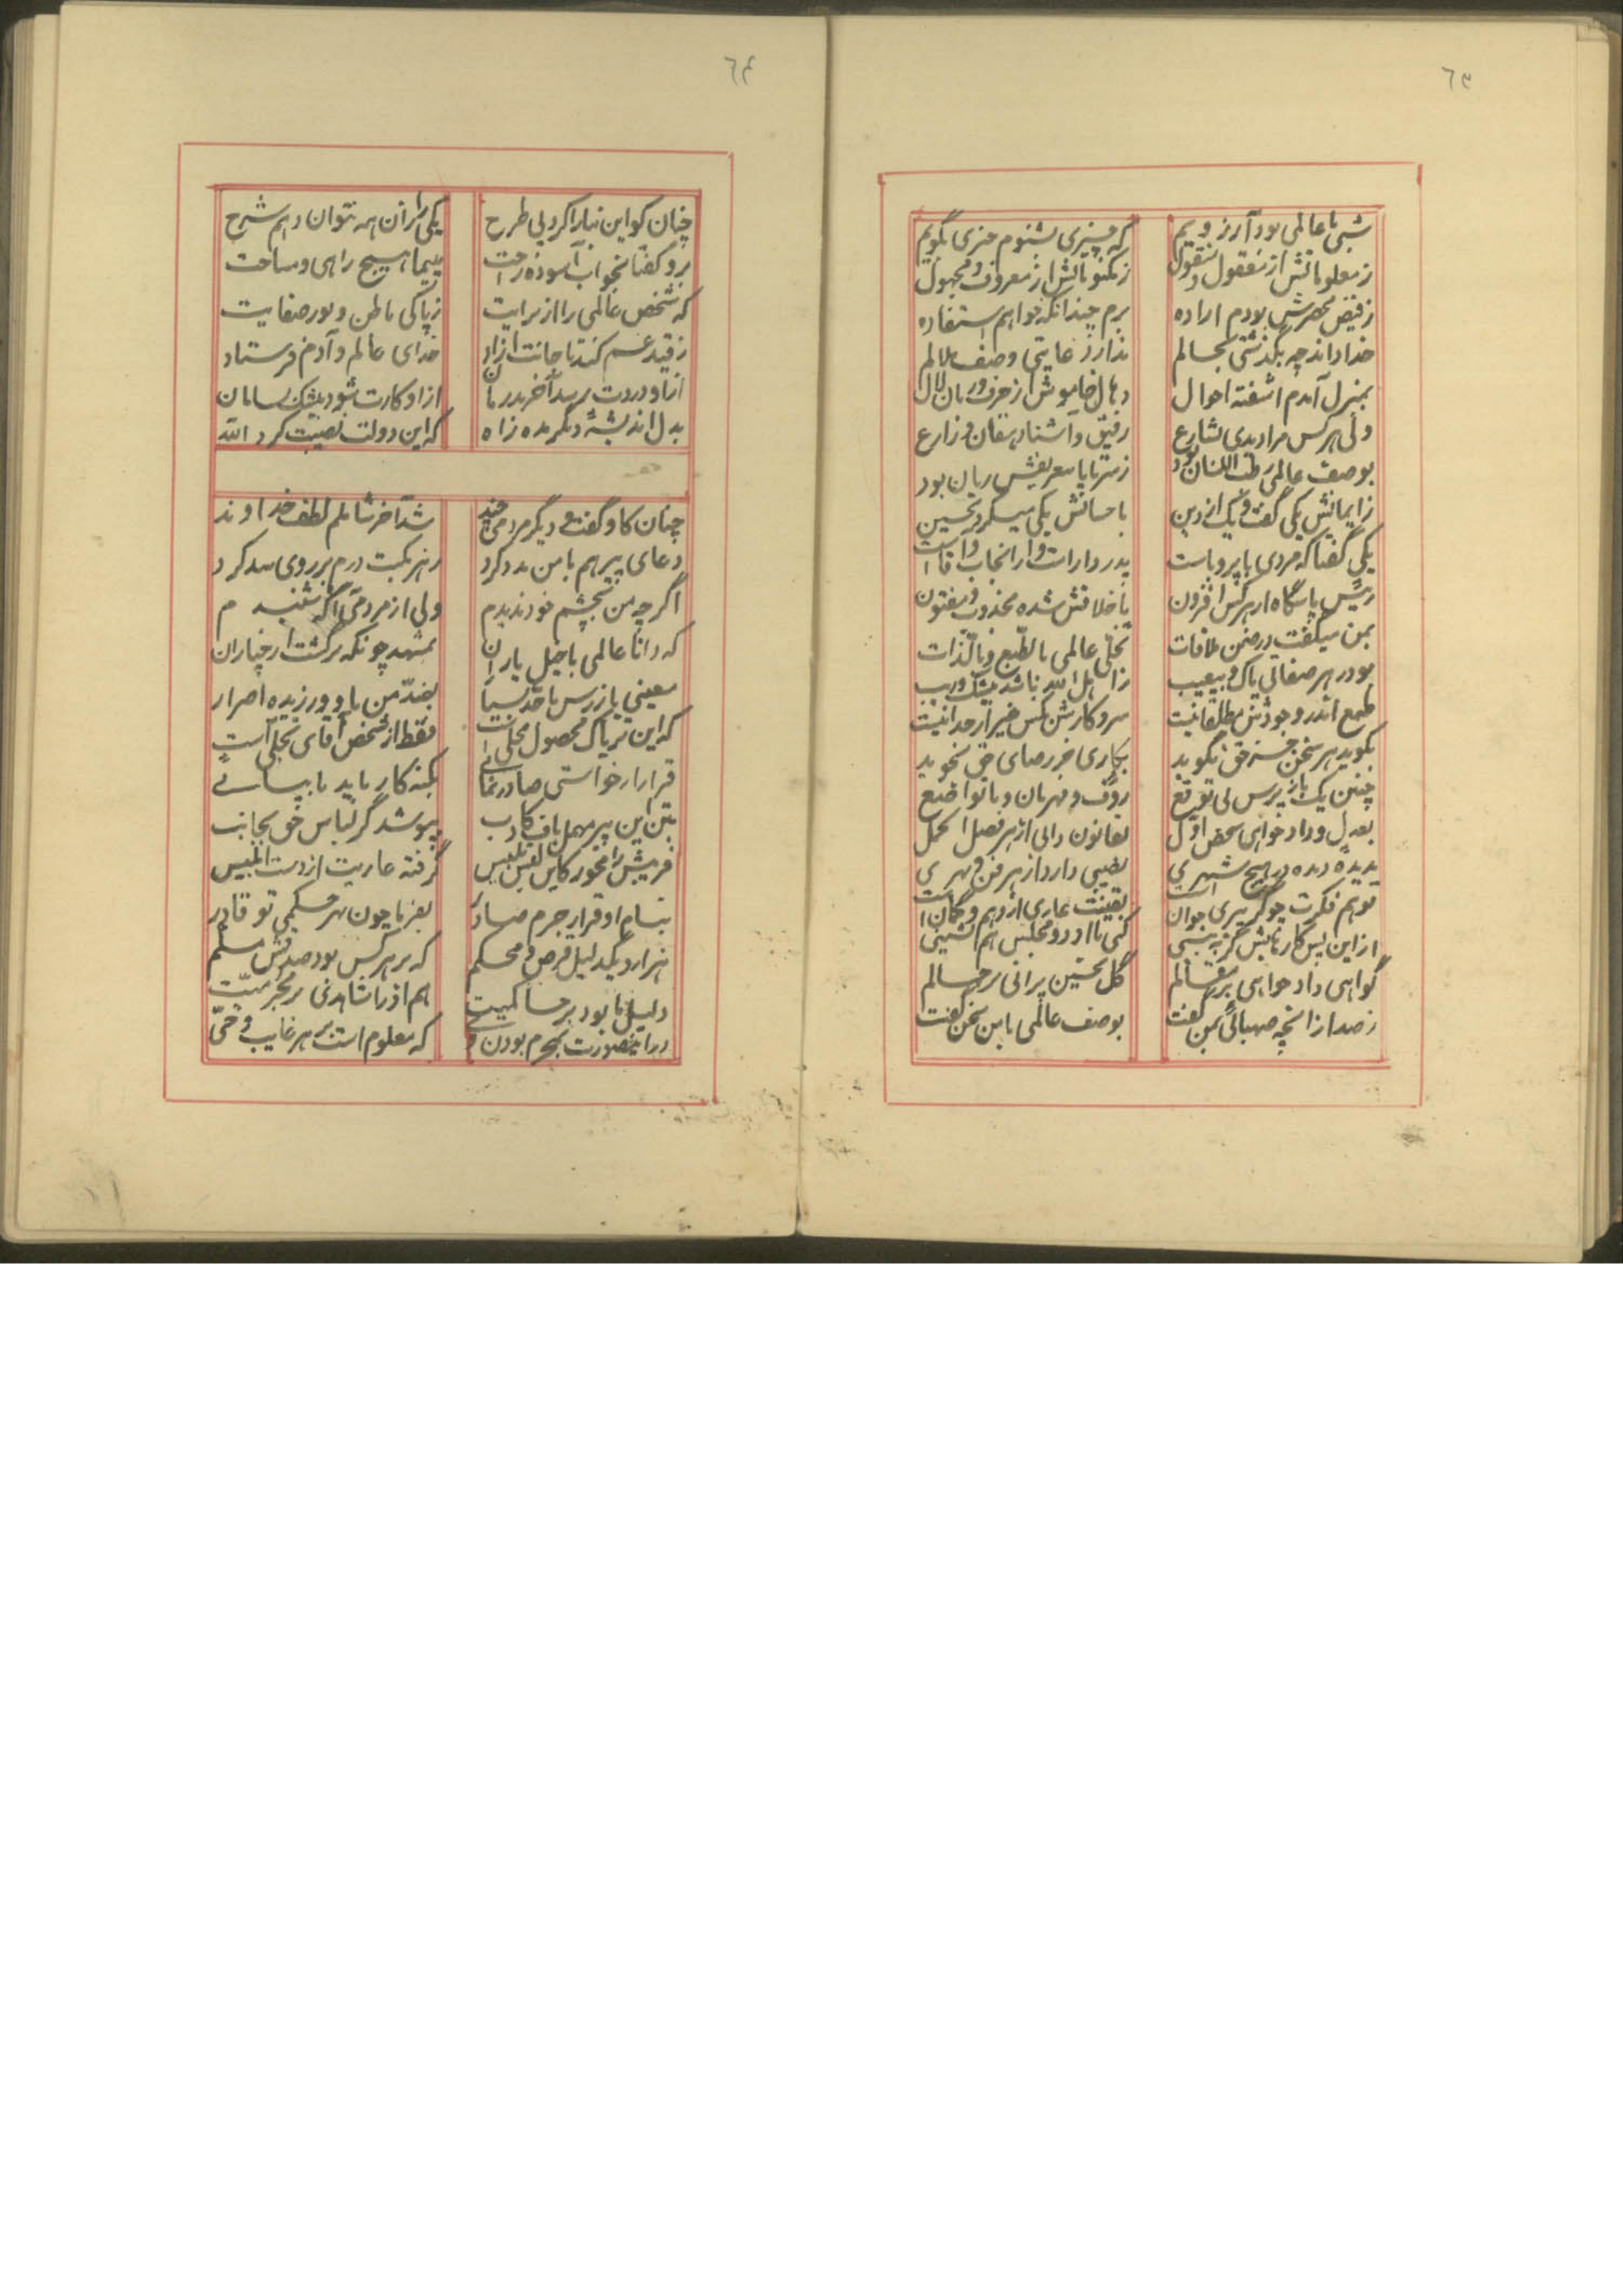 ٦٥
شبی با عالمی بود آرزویم
که چیزی بشنوم چیزی بگویم
ز معلوماتش از معقول و منقول
ز مکتوباتش از معروف و مجهول
ز فیض محضرش بودم اراده
برم چندانکه خواهم استفاده
خدا داند چه بگذشتی بحالم
ندارد غایتی وصف ملالم
بمنزل آمدم آشفته احوال
دهان خاموش از حرف و زبان لال
ولی هر کس مرا دیدی بشارع
رفیق و آشنا دهقان و زارع
بوصف عالمی رطب اللسان بود
ز سر تا پا بتعریفش زبان بود
ز ایمانش یکی گفت و یک از دین
باحسانش یکی میکرد تحسین
یکی گفتا که مردی با پر و پاست
رئیس پاسگاه از هر کس افزون
باخلاقش شده مجذوب و مفتون
بمن میگفت در ضمن ملاقات
تجلی عالمی بالطبع و بالذات
بود در هر صفاتی پاک و بیعیب
ز اهل الله باشد بیشک و ریب
طمع اندر وجودش مطلقا نیست
سر و کارش بکس غیر از خدا نیست
بگوید هر سخن جز حق نگوید
بکاری جز رضای حق نجوید
چنین یک بازپرس بی توقع
رؤف و مهربان و با تواضع
بعدل و داد خواهی شخص اول
بقانون دانی از هر فصل اکمل
ندیده دیده در هیچ شهری
نصیبی دارد از هر فن و بهری
توهم فکرت چو گر پیری جوان است
یقینت عاری از وهم و گمان است
از این پس کار نابش گر به بینی
کنی با او در و مجلس هم نشینی
گواهی داد خواهی بر مقالم
گل تحسین پرانی بر جمالم
ز صد از آنچه صهبائی بمن گفت
بوصف عالمی با من سخن گفت
٦٤
چنان کو این نبا را کرد پی طرح
یکی را زان همه نتوان دهم شرح
برو گفتا بخواب آسوده راحت
مپیما هیچ راهی و مساحت
که شخص عالمی را از برایت
ز پاکی باطن و نور صفایت
ز قید غم کند تا جانت آزاد
خدای عالم و آدم فرستاد
از او دردت رسد آخر بدرمان
از او کارت شود بیشک بسامان
بدل اندیشهٔ دیگر مده راه
که این دولت نصیبت کرد الله
چنان کاو گفت و دیگر مردمی چند
شد آخر شاملم لطف خداوند
دعای پیر هم با من مدد کرد
در نکبت درم بر روی سد کرد
اگر چه من بچشم خود ندیدم
ولی از مردمی آگه شنیدم
که دانا عالمی با خیل یاران
بمشهد چونکه برگشت از خپاران
معینی بازرس با قدسیا
بضدّ من باو ورزیده اصرار
که این تریاک محصول محلی است
فقط از شخص آقای تجلی است
قرار ار خواستی صادر نمائی
بکنه کار باید با بیائی
بتن این پیر مهمل باف کاذب
بپوشد گر لباس حق بجانب
فریبش را مخور کاین نفس تلبیس
گرفته عاریت از دست ابلیس
بنام او قرار جرم صادر
بفرما چون بهر حکمی تو قادر
هزار و یکدلیل قرص و محکم
که بر هر کس بود صدقش مسلم
دلیل ما بود بر حاکمیت
هم او را شاهدی بر مجرمیت
در اینصورت بمجرم بودن وی
که معلوم است بر هر غایب و حیّ